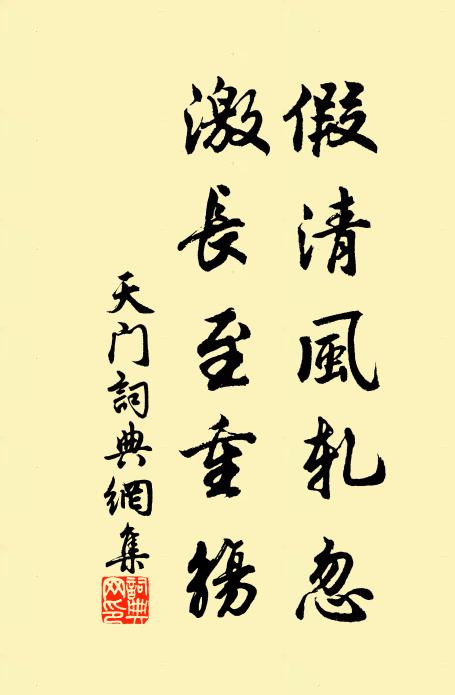 假清風軋忽
激長至重觴
天门詞典網集
詞典网印